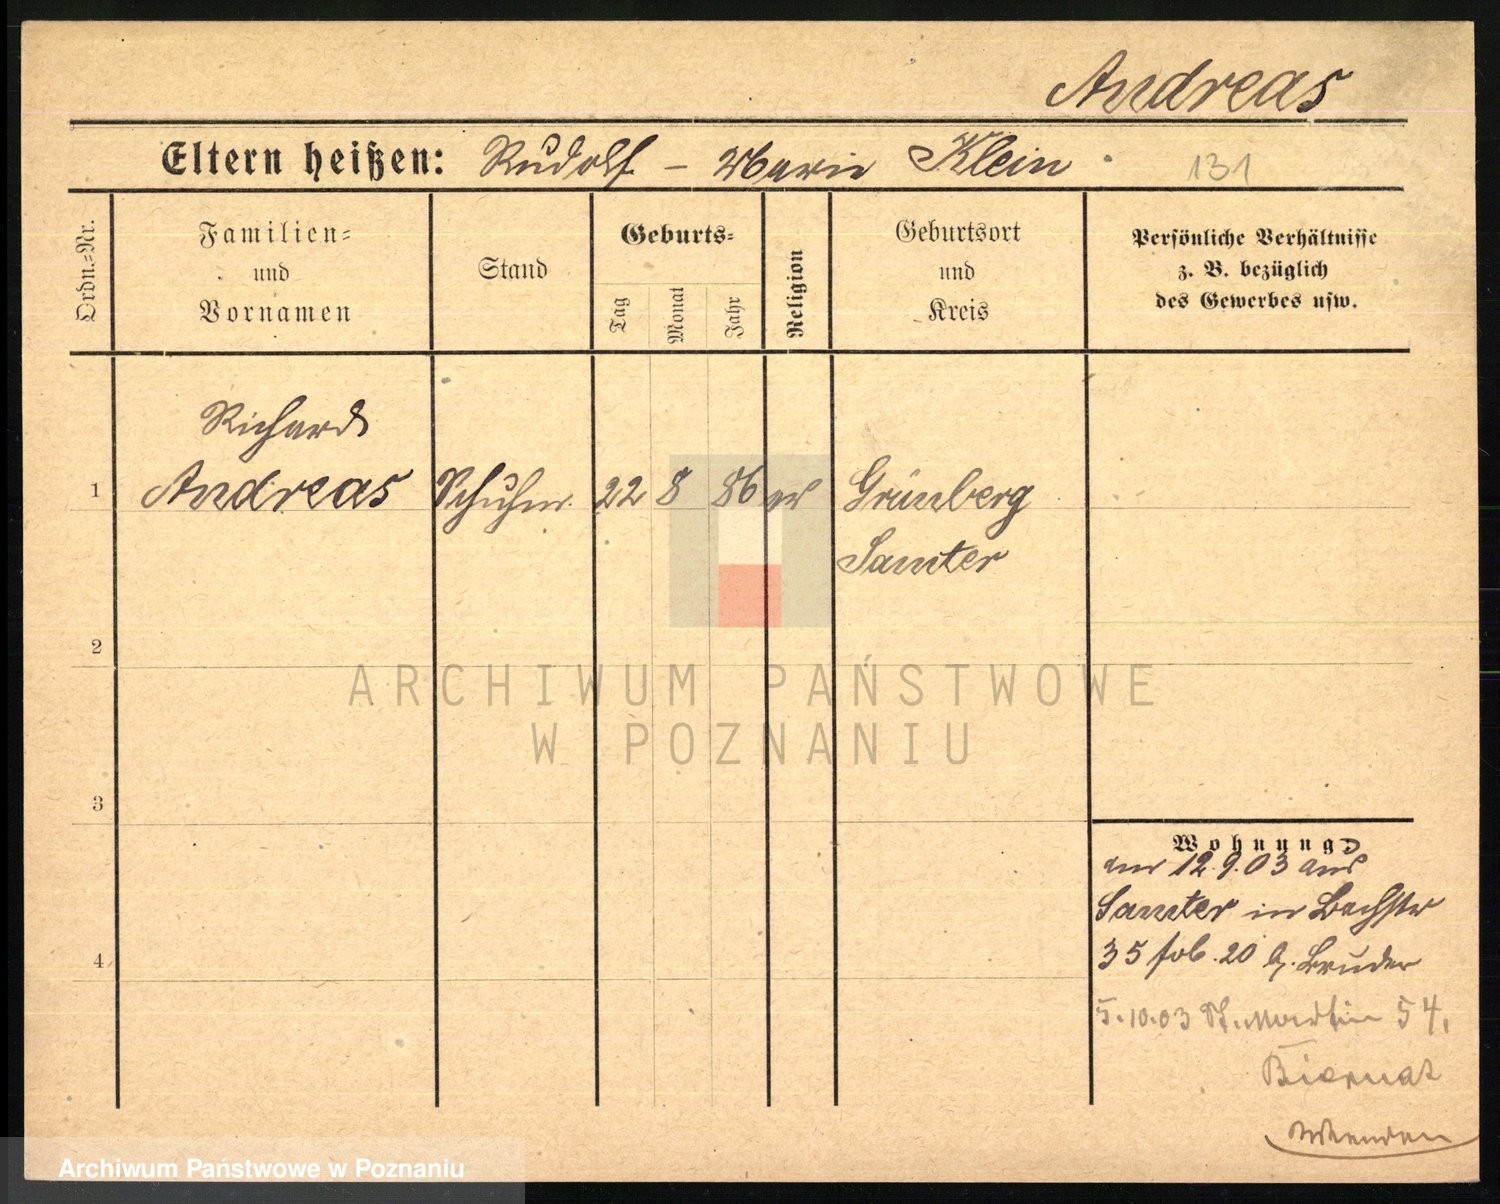 Andreas
Eltern heißen: Rudolf – Marie Klein
131
Ordn.-Nr.
Familien-
und
Vornamen
Stand
Geburts-
Tag
Monat
Jahr
Religion
Geburtsort
und
Kreis
Persönliche Verhältnisse
z. B. bezüglich
des Gewerbes usw.
Richard
1 Andreas Schuhm. 22 8 86 ev Grünberg
Samter
2
3
4
Wohnung:
am 12.9.03 aus
Samter in Bachstr
35 seb. 20 b. Bruder
5.10.03 St. Martin 54.
Biernat
Wenden
ARCHIWUM PAŃSTWOWE
W POZNANIU
Archiwum Państwowe w Poznaniu